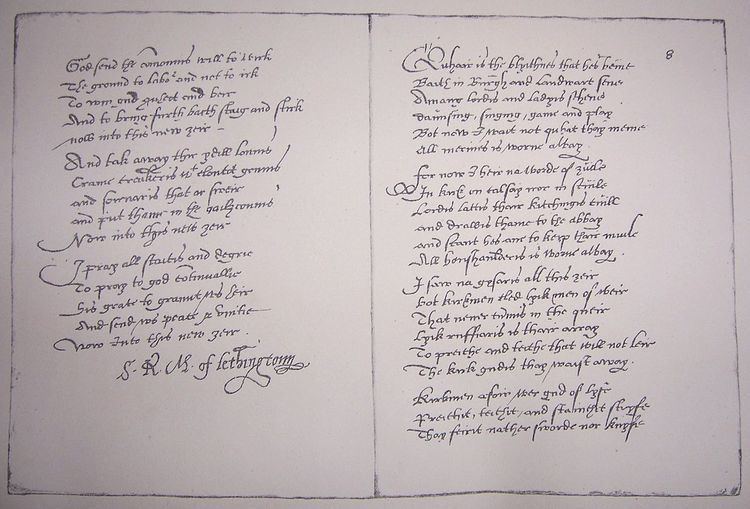 God send the comonnis will to wirk
The ground to labor and not to irk
To win gud quheit and beir
And to bring furth baith staig and stirk
now into this new zeir
And tak away thir ydill lounis
Crame creukeris wt clowtit gounis
and sornaris that ar sweir
and put thame in the gailzeounis
Now into this new zeir
I pray all staitis and degrie
To pray to god continuallie
His grace to graunt ws heir
And send ws peace & vnitie
Now Into this new zeir
S. R. M. of lethingtoun
8
Quhair is the blythnes that hes beine
Baith in Burgh and Landwart seine
Amang Lordis and Ladyis scheine
daunsing, singing, game and play
Bot now I wait not quhat thay meine
All merines is worne away
For now I heir na worde of zuile
In kirk on calsay nor in scuile
Lordis lattis thair kitchingis cuill
and drawis thame to the abbay
and scant hes ane to keip thair muile
All houshaulderis is worne away
I saw na gysaris all this zeir
bot kirkmen cled lyik men of weir
That never cumis in the queir
Lyik ruffianis is thair array
To preiche and teiche that will not leir
The kirk gudis thay waist away
Kirkmen afoir wer gud of lyfe
Preichit, teichit, and stainchit stryfe
Thay feirit nather sworde nor knyfe